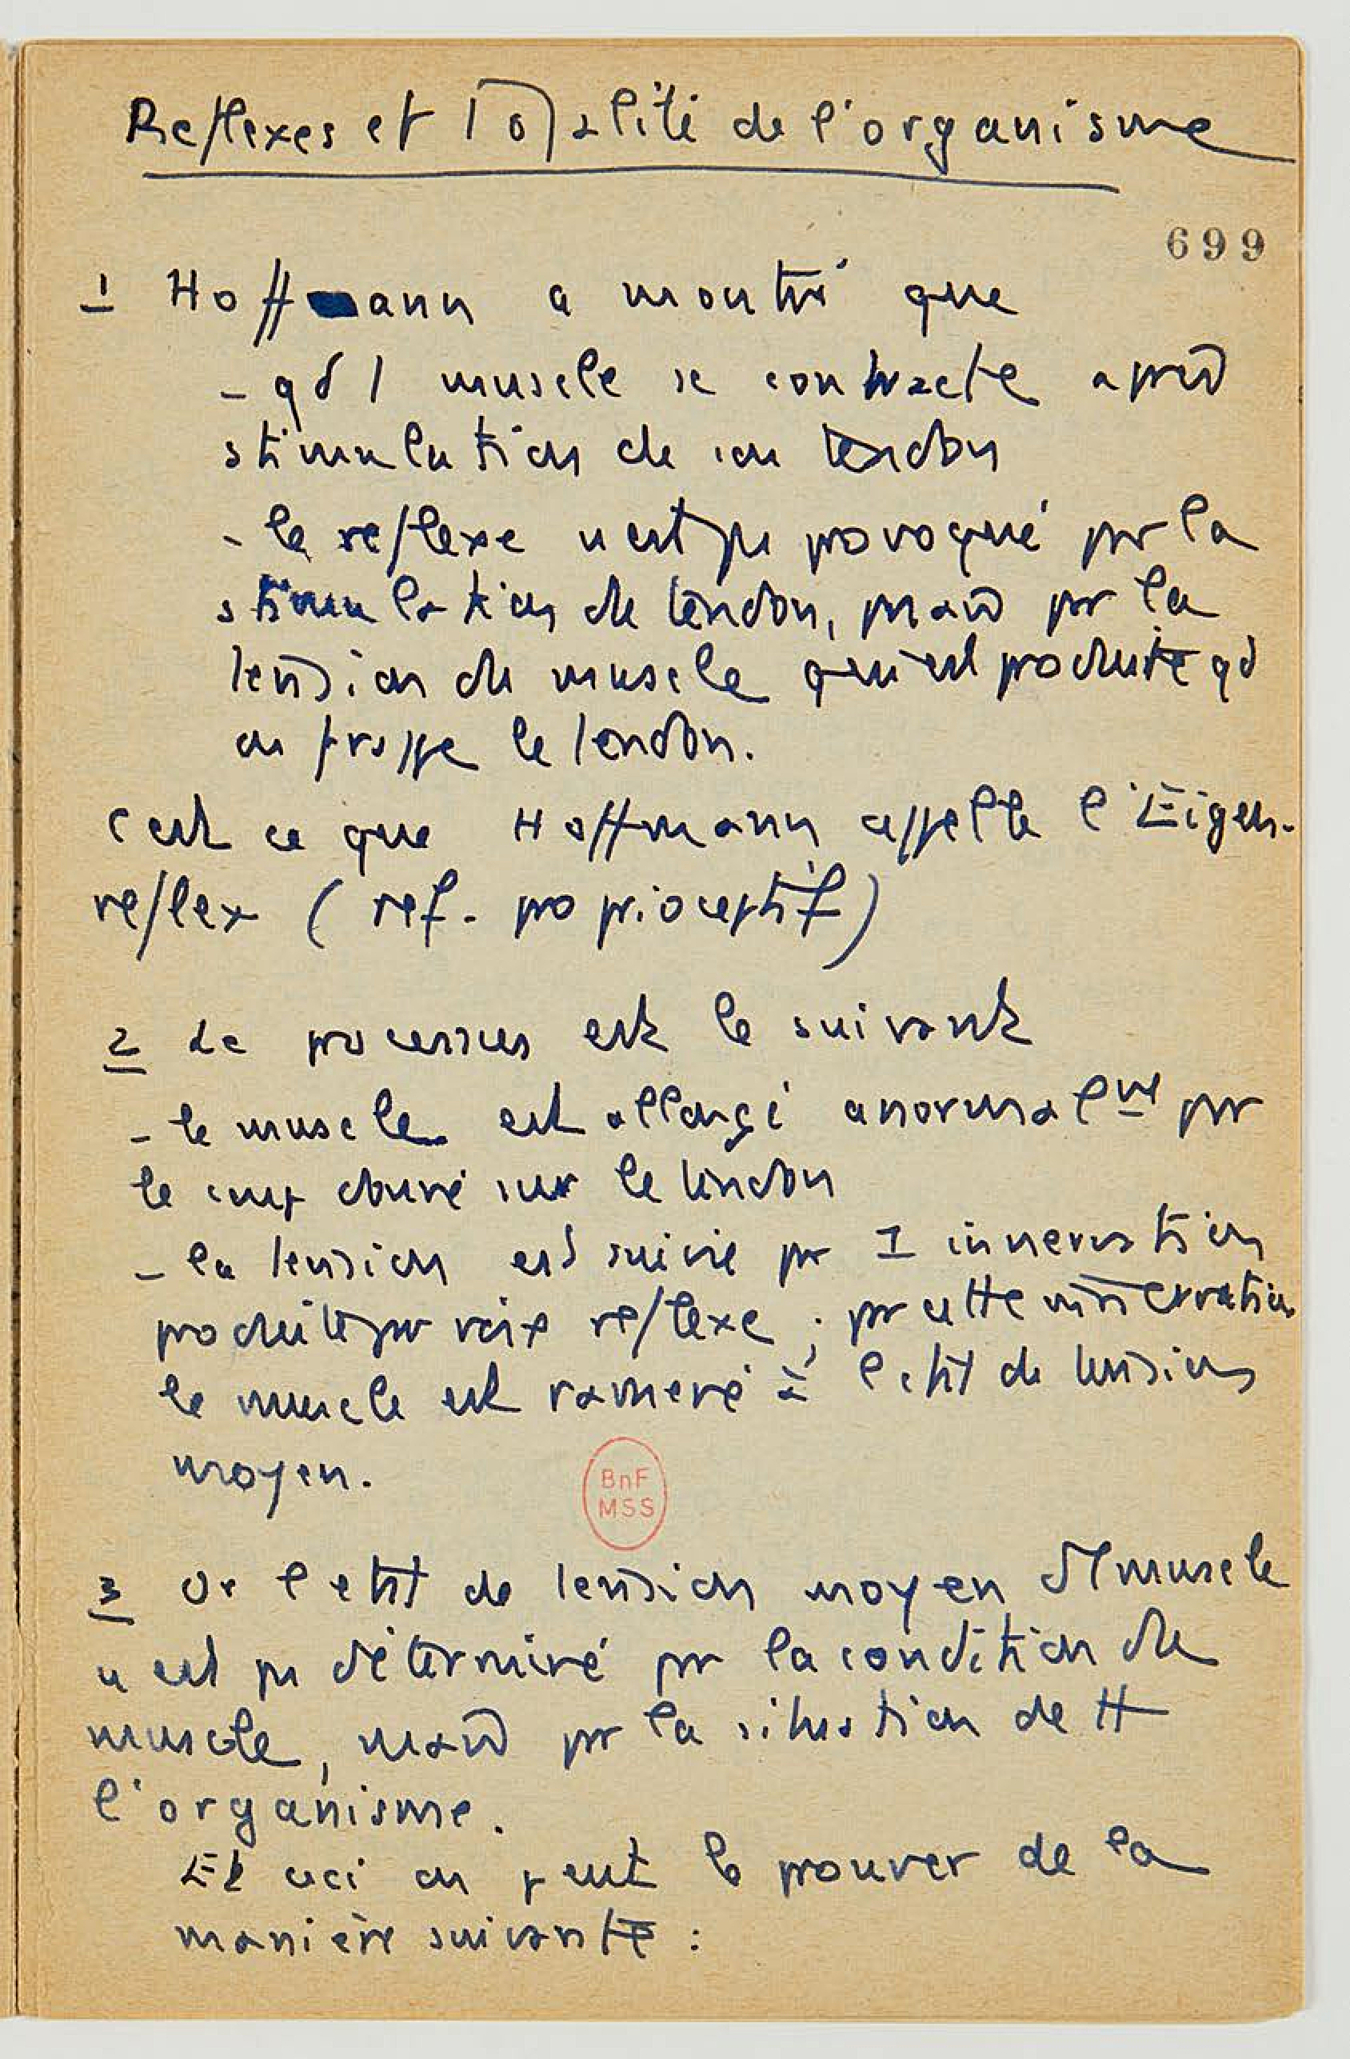 Reflexes et Totalité de l'organisme
699
1 Hoffmann a montré que
- qd 1 muscle se contracte après
stimulation de son tendon
- le reflexe n'est pas provoqué par la
stimulation du tendon, mais par la
tension du muscle qui est produite qd
on frappe le tendon.
C'est ce que Hoffmann appelle l'Eigen-
reflex (ref. proprioceptif)
2 Le processus est le suivant
- le muscle est allongé anormalmt par
le coup donné sur le tendon
- la tension est suivie par 1 innervation
produite par voie reflexe ; par cette innervation
le muscle est ramené à l'état de tension
moyen.
BnF
MSS
3 Or l'état de tension moyen d'1 muscle
n'est pas déterminé par la condition du
muscle, mais par la situation de tt
l'organisme.
Et ceci on peut le prouver de la
manière suivante :